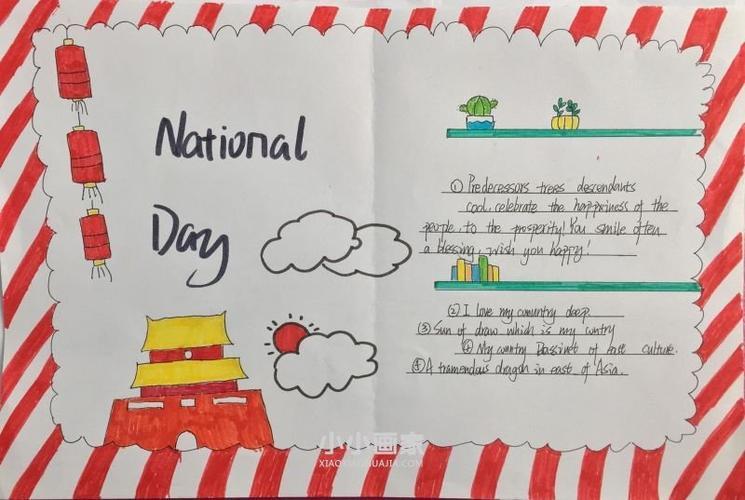 National
Day
① Predecessors trees descendants
cool, celebrate the happxiness of the
people, to the prosperity! You smile often
a blessing, wish you happy!
② I love my comuntry deep
③ Sun of draw which is my cuntry
④ My cuntry Plassinet of east culture.
⑤ A tramendous dragon in east of Asia.
小小画家
XIAOXIAOHUAJIA.COM